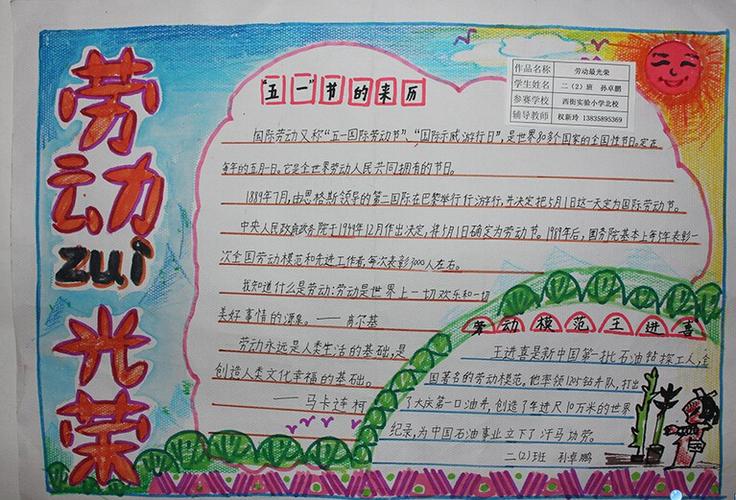 劳动zui光荣
作品名称 劳动最光荣
学生姓名 二（2）班 孙卓鹏
参赛学校 西街实验小学北校
辅导教师 权新玲 13835895369
"五一"节的来历
国际劳动又称"五一国际劳动节"、"国际示威游行日"，是世界80多个国家的全国性节日。定在
每年的五月一日。它是全世界劳动人民共同拥有的节日。
1889年7月，由恩格斯领导的第二国际在巴黎举行行游行，并决定把5月1日这一天定为国际劳动节。
中央人民政府政务院于1949年12月作出决定，将5月1日确定为劳动节。1989年后，国务院基本上每5年表彰一
次全国劳动模范和先进工作者，每次表彰3000人左右。
我知道什么是劳动：劳动是世界上一切欢乐和一切
美好事情的源泉。——高尔基
劳动永远是人类生活的基础，是
创造人类文化幸福的基础。
——马卡连柯
劳动模范王进喜
王进喜是新中国第一批石油钻探工人，全
国著名的劳动模范。他率领1205钻井队，打出
了大庆第一口油井，创造了年进尺10万米的世界
纪录，为中国石油事业立下了汗马功劳。
二（2）班 孙卓鹏